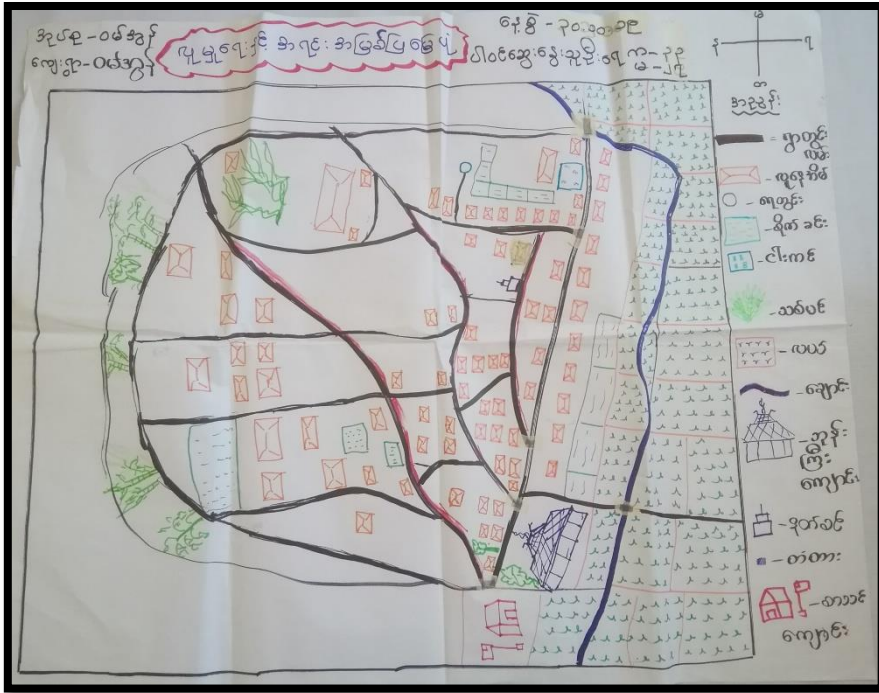 အုပ်စု - ဝမ်အွန်
ကျေးရွာ - ဝမ်အွန်
လူမှုရေးနှင့် အရင်းအမြစ်ပြမြေပုံ
နေ့စွဲ - ၃၀.၁၁.၁၉
ပါဝင်ဆွေးနွေးသူဦးရေ
အညွှန်း
= ရွာတွင်းလမ်း
- လူနေအိမ်
- ရေတွင်း
- စိုက်ခင်း
- ငါးကန်
- သစ်ပင်
- လယ်
- ချောင်း
- ဘုန်းကြီးကျောင်း
- နတ်စင်
- တံတား
- စာသင်ကျောင်း